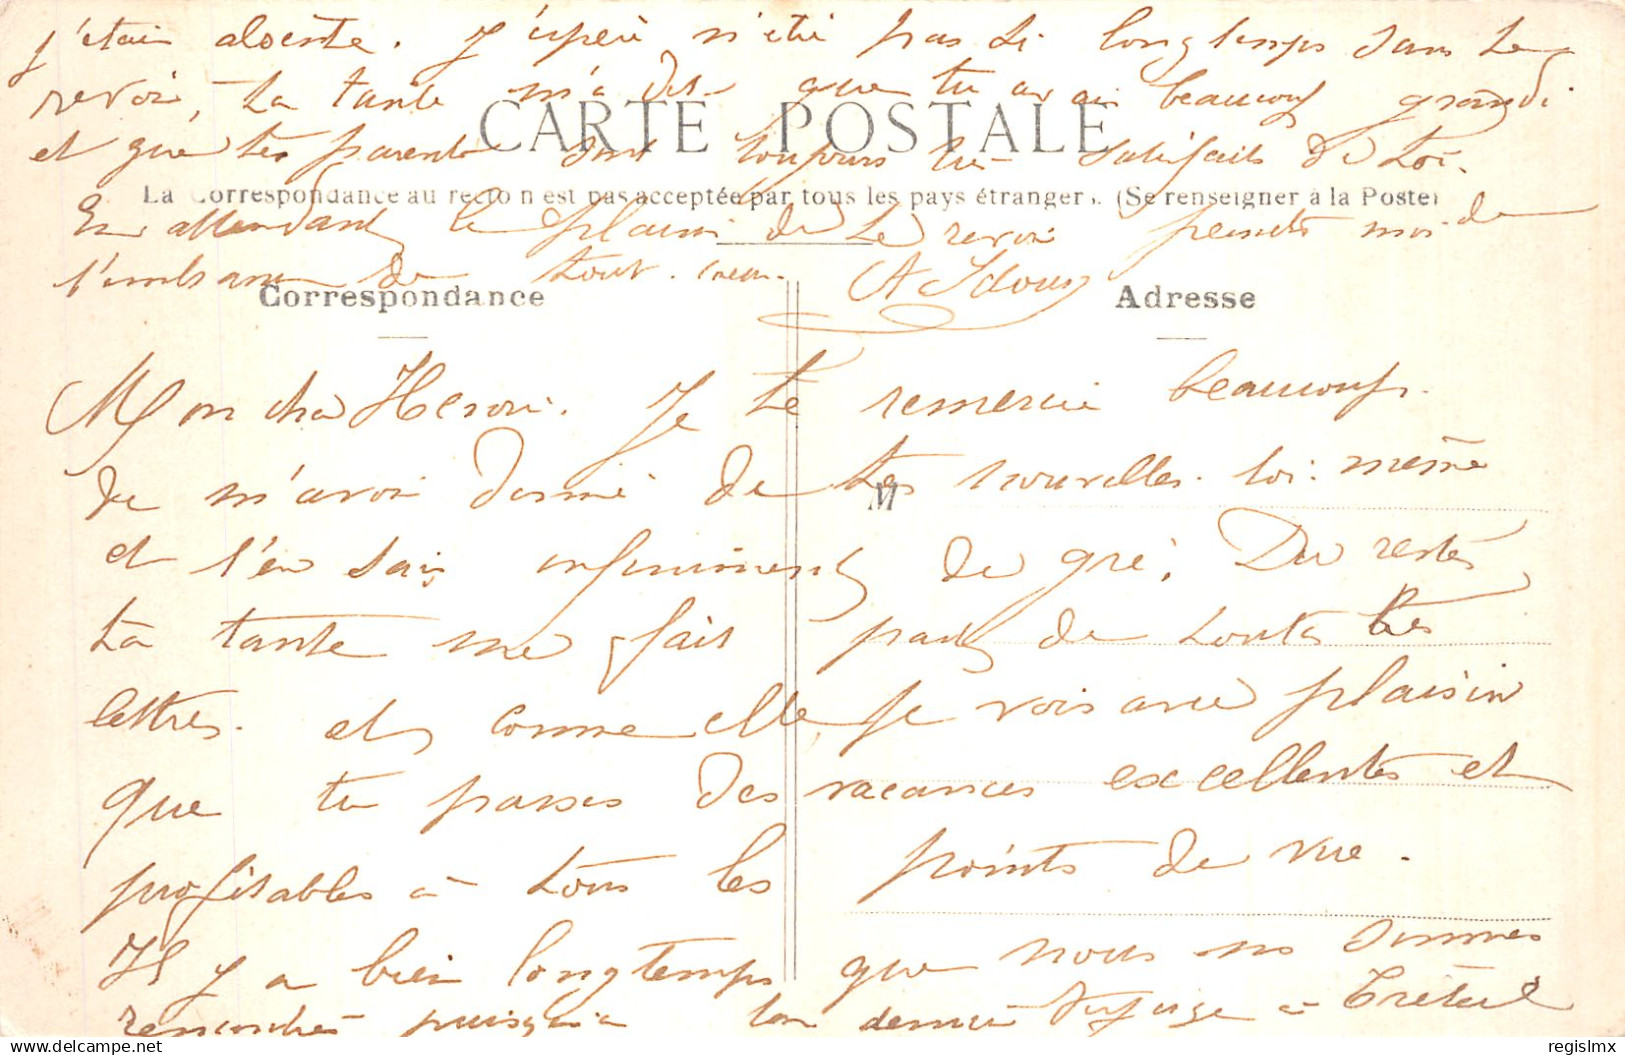 j'étais absente. J'espère n'être pas si longtemps sans te
revoir, ta tante m'a dit que tu avais beaucoup grandi
CARTE POSTALE
et que tes parents sont toujours très satisfaits de toi.
La Correspondance au recto n'est pas acceptée par tous les pays étrangers. (Se renseigner à la Poste)
En attendant le plaisir de te revoir permets moi de
t'embrasser de tout cœur.
Correspondance
Adresse
Mon cher Je te remercie beaucoup
de m'avoir donné de tes nouvelles toi-même
M
et t'en sais infiniment de gré. Du reste
ta tante me fait part de toutes tes
lettres et comme elle je vois avec plaisir
que tu passes des vacances excellentes et
profitables à tous les points de vue.
Il y a bien longtemps que nous nous sommes
rencontrés puisqu'à ton dernier à Créteil
regislmx
delcampe.net